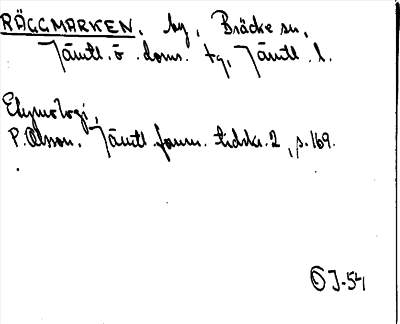 RÄGGMARKEN, by, Bräcke sn,
Jämtl. ö. doms. tg, Jämtl. l.
Etymologi,
P. Olsson. Jämtl. fornm. tidskr. 2, s. 169.
OJ-54